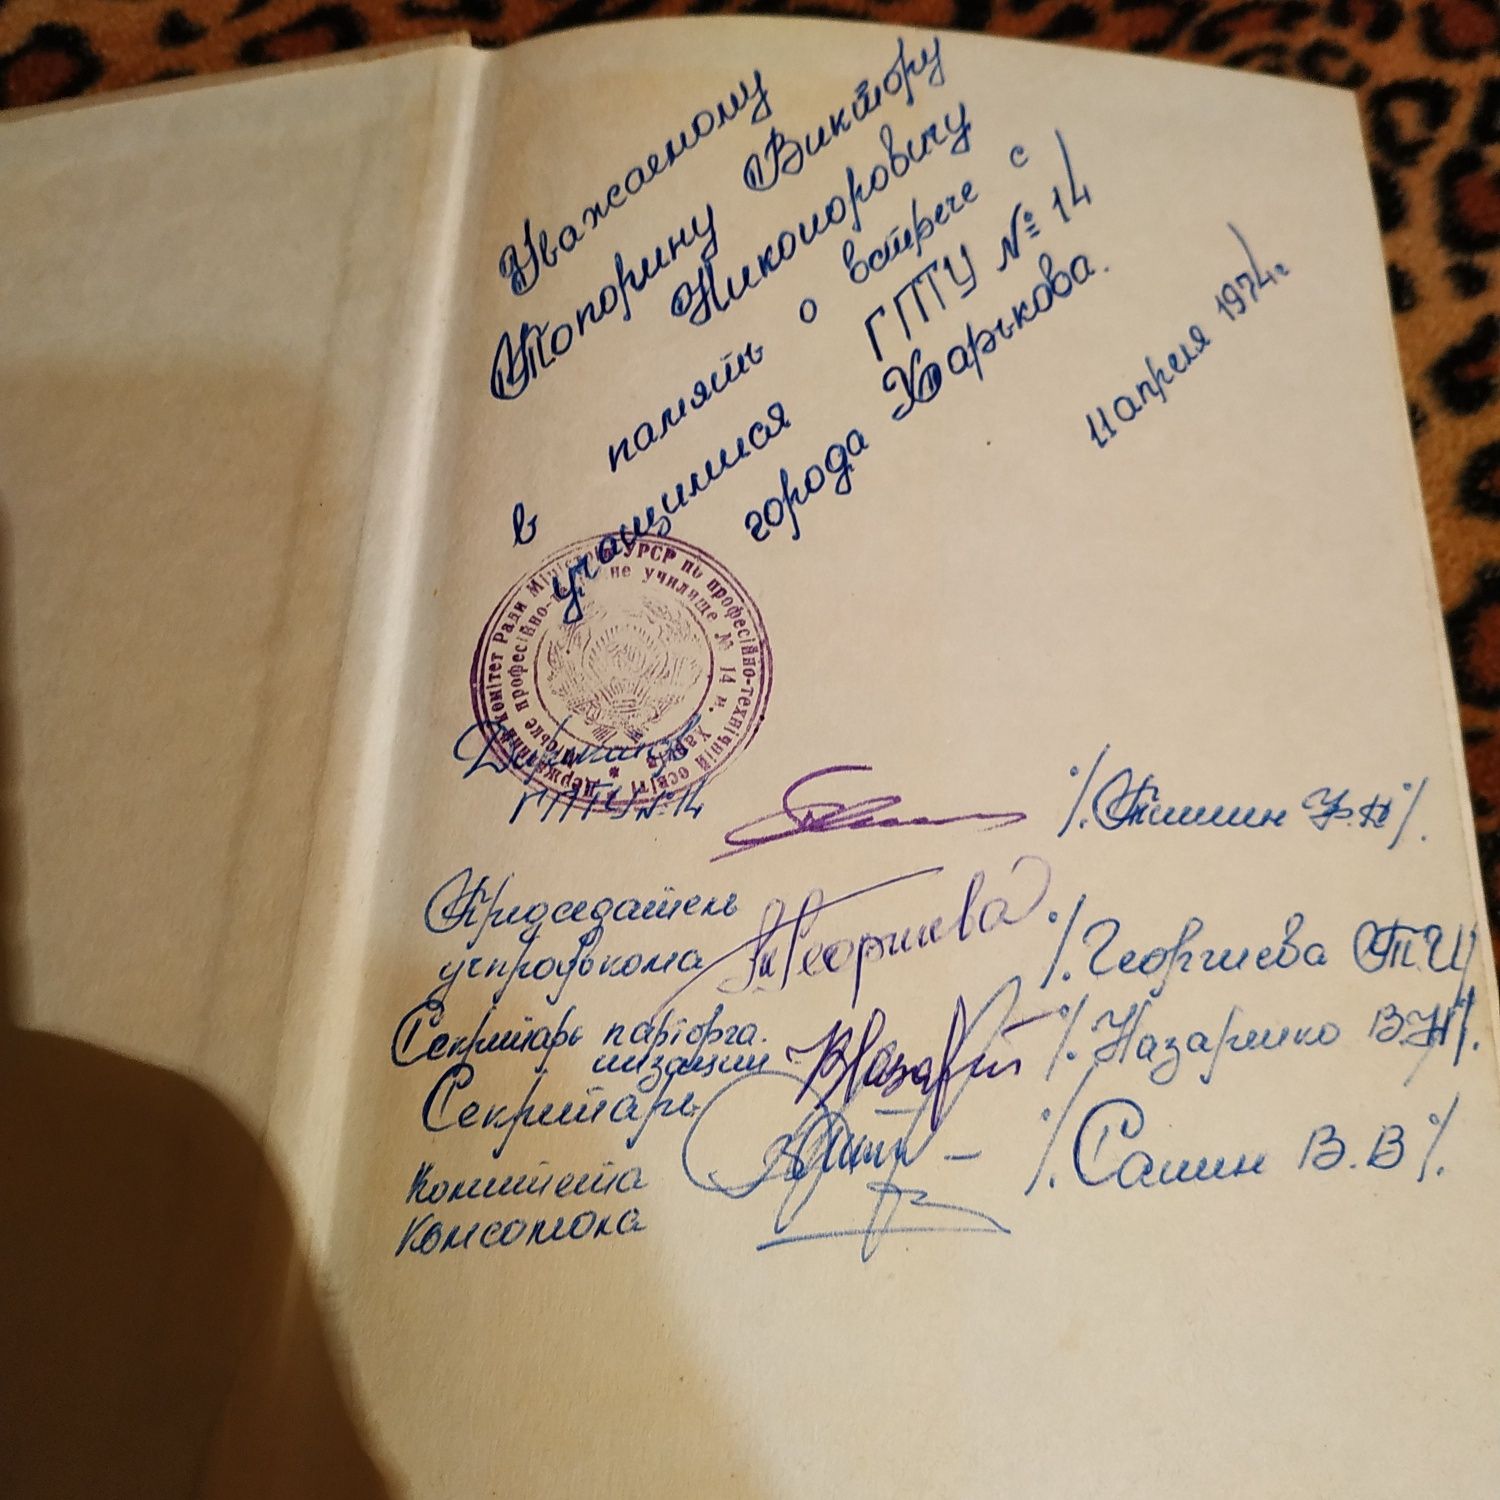 Уважаемому
Топорину Виктору
Никоноровичу
в память о встрече с
учащимися ГПТУ № 14
города Харькова.
11 апреля 1974 г
Державний комітет Ради Міністрів УРСР по професійно-технічній освіті
міське професійно-технічне училище № 14 м. Харків
Директор
ГПТУ №14
/. Тишин /.
Председатель
учпрофкома Георгиева /. Георгиева Т.И
Секретарь парторга-
низации /. Назаренко В. /.
Секретарь
Комитета /. Самин В.В /.
Комсомола